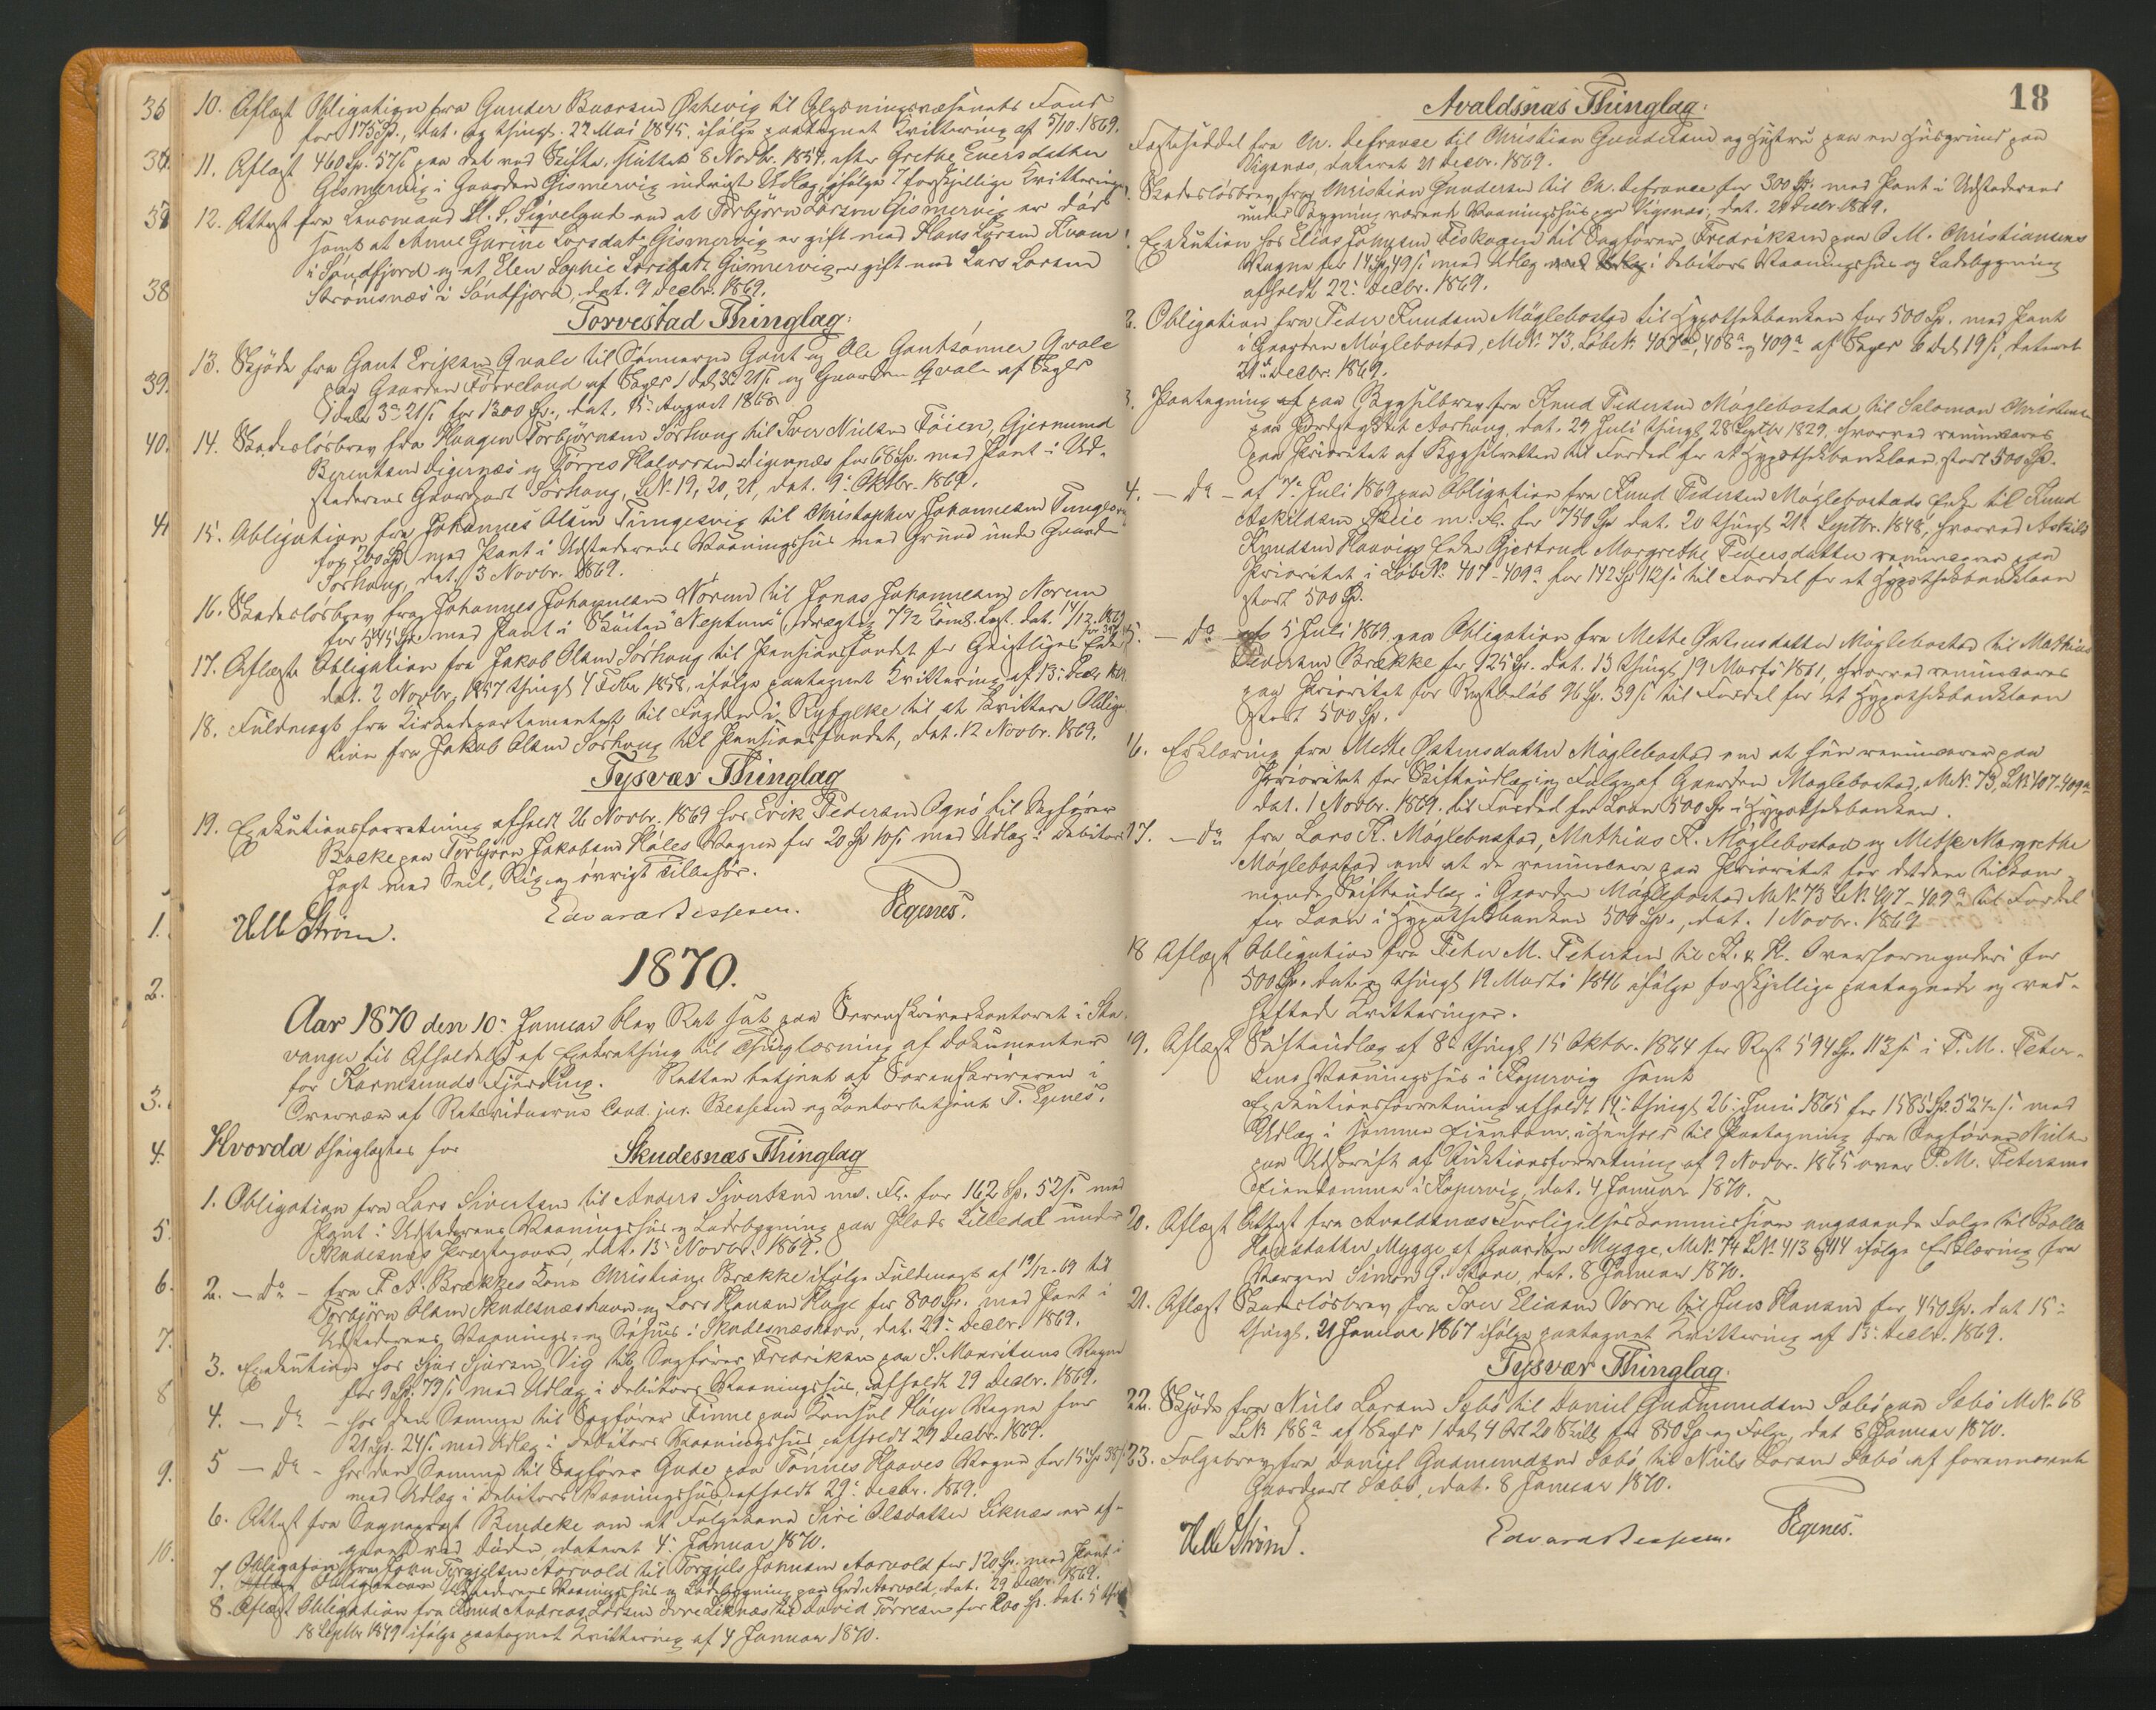 10. Aflæst Obligation fra Gunder Baarsen Østevig til Oplysningsvæsenets Fond
for 175 Sp., dat. og thingl. 22 Mai 1845, ifølge paategnet Kvittering af 5/10 1869.
11. Aflæst 460 Sp. 57 s paa det ved Skifte, sluttet 8 Novbr. 1854, efter Grethe Eversdatter
Gismervig i Gaarden Gismervig indrigt Udlæg, ifølge 7 forskjellige Kvitteringer
12. Attest fra Lensmand M. S. Sigvelgud om at Torbjörn Larsen Gismervig er död
samt at Anne Gurine Larsdatr. Gismervig er gift med Hans Larsen Kvam
i Söndfjord og at Elen Sophie Larsdatr. Gismervig er gift med Lars Larsen
Strömsnæs i Söndfjord, dat. 9 Decbr. 1869.
Torvestad Thinglag:
13. Skjöde fra Gaut Eriksen Qvale til Sönnerne Gaut og Ole Gautsönner Qvale
paa Gaarden Förreland af Skyld 1 dal 3 21 s og Gaarden Qvale af Skyld
1 dal 3 21 s for 1300 Sp., dat. 15 August 1868.
14. Skadeslösbrev fra Haagen Torbjörnsen Sörhaug til Iver Nielsen Föien, Gjermund
Berentsen Digernæs og Törres Halvorsen Digernæs for 68 Sp. med Pant i Ud-
stederens Gaardpart Sörhaug, LNo. 19, 20, 21, dat. 9 Oktbr. 1869.
15. Obligation fra Johannes Olsen Tungesvig til Christopher Johannesen Tungesvig
for 200 Sp. med Pant i Udstederens Vaaningshus med Grund under Gaarden
Sörhaug, dat. 3 Novbr. 1869.
16. Skadeslösbrev fra Johannes Johannesen Norem til Jonas Johannesen Norem
for 545 Sp. med Pant i Skuiten "Neptun", drægtig 7 1/2 Com. Lest. dat. 14/12 1869
17. Aflæst Obligation fra Jakob Olsen Sörhaug til Pensionsfondet for Geistliges Enker
dat. 2 Novbr. 1857 thingl. 4 Febr. 1858, ifølge paategnet Kvittering af 13 Decbr. 1869.
18. Fuldmagt fra Kirkedepartementet til Fogden i Ryfylke til at kvittere Obliga-
tion fra Jakob Olsen Sörhaug til Pensionsfondet, dat. 12 Novbr. 1869.
Tysvær Thinglag
19. Exekutionsforretning afholdt 26 Novbr. 1869 hos Erik Pedersen Ognö til Sagförer
Bocke paa Torbjörn Jakobsen Høles Vegne for 20 Sp 10 s med Udlæg i Debitors
Jagt med Seil, Rig og övrigt Tilbehör.
Helle Ström. Edvard Bessesen. T Egenes.
1870.
Aar 1870 den 10 Januar blev Ret sat paa Sorenskriverkontoret i Sta-
vanger til Afholdelse af Extrathing til Thinglæsning af Dokumenter
for Karmsunds Fjerding. Retten betjent af Sorenskriveren i
Overvær af Retsvidnerne Cand. jur. Bessesen og Kontorbetjent T. Egenes.
Hvorda thinglæstes for
Skudesnæs Thinglag
1. Obligation fra Lars Sivertsen til Anders Sivertsen m. Fl. for 162 Sp. 52 s. med
Pant i Udstederens Vaaningshus og Ladebygning paa Plads Lilledal under
Skudesnæs Præstegaard, dat. 15 Novbr. 1869.
2. - Do - fra P. A. Brækkes Kone Christiane Brække ifølge Fuldmagt af 19/12 69 til
Torbjörn Olsen Skudesnæshavn og Lars Hansen Hage for 800 Sp. med Pant i
Udstederens Vaanings- og Söhus i Skudesnæshavn, dat. 21 Decbr. 1869.
3. Exekution hos Sjur Sjursen Vig til Sagförer Fredriksen paa S. Mauritzens Vegne
for 9 Sp. 79 s med Udlæg i Debitors Vaaningshus, afholdt 29 Decbr. 1869.
4. - Do - hos den Samme til Sagförer Finne paa Konsul Köhler Vegne for
21 Sp. 24 s. med Udlæg i Debitors Vaaningshus, afholdt 29 Decbr. 1869.
5 - Do - hos den Samme til Sagförer Gude paa Tönnes Haaves Vegne for 15 Sp 38 s
med Udlæg i Debitors Vaaningshus afholdt 29 Decbr. 1869.
6. Attest fra Sognepræst Bendeke om at Folgekone Siri Olsdatter Liknæs er af-
gaaet ved Döden, dateret 4 Januar 1870.
7. Obligation fra John Torgilsen Aarvold til Torgils Johnsen Aarvold for 120 Sp. med Pant i
Udstederens Vaaningshus og Ladebygning paa Grd. Aarvold, dat. 29 Decbr. 1869.
8. Aflæst Obligation fra Knud Andreas Larsen Dore Liknæs til David Törresen for 200 Sp. dat. 5
18 Septbr 1849 ifølge paategnet Kvittering af 4 Januar 1870.
36
38
39.
40.
41
1.
2.
3.
4.
5.
6.
7.
8
9.
10.
18
Avaldsnæs Thinglag:
Festeseddel fra Ch. Defrance til Christian Gundersen og Hustru paa en Husgrund paa
Vigsnæs, dateret 21 Decbr. 1869.
Skadeslösbrev fra Christian Gundersen til Ch. Defrance for 300 Sp. med Pant i Udstederens
under Bygning værende Vaaningshus paa Vigsnæs, dat. 21 Decbr. 1869.
Exekution hos Elias Johnsen Fiskaaen til Sagförer Fredriksen paa P. M. Christiansens
Vegne for 14 Sp. 49 s med Udlæg i Debitors Vaaningshus og Ladebygning
afholdt 22 Decbr. 1869.
2. Obligation fra Peder Knudsen Møglebostad til Hypothekbanken for 500 Sp. med Pant
i Gaarden Møglebostad, MNo. 73, LøbeNo 407, 408a og 409a af Skyld 6 Dal 19 s, dateret
21 Decbr. 1869.
3. Paategning paa Bygselbrev fra Knud Pedersen Møglebostad til Salomon Christensen
paa Jordstykket Aarhaug, dat. 29 Juli thingl. 28 Septbr 1829, hvorved renunceres
paa Prioritet af Bygselretten til Fordel for et Hypothekbanklaan, stort 500 Sp.
4. - Do - af 7 Juli 1869 paa Obligation fra Knud Pedersen Møglebostads Enke til Knud
Askildsen Skeie m. Fl. for 750 Sp dat. 20 thingl. 21 Septbr. 1848, hvorved Askild
Knudsen Haavigs Enke Gjertrud Margrethe Pedersdatter renuncerer paa
Prioritet i LøbeNo. 407-409a for 142 Sp 112 s til Fordel for et Hypothekbanklaan
stort 500 Sp.
5. - Do - 5 Juli 1869 paa Obligation fra Methe Østensdatter Møglebostad til Mathias
Pedersen Brække for 125 Sp. dat. 13 thingl. 19 Marts 1861, hvorved renunceres
paa Prioritet for Restbeløb 96 Sp. 39 s til Fordel for et Hypothekbanklaan
stort 500 Sp.
16. Erklæring fra Methe Østensdatter Møglebostad om at hun renuncerer paa
Prioritet for Skifteudlæg i Følge af Gaarden Møglebostad, MNo. 73, LNo 407-409a
dat. 1 Novbr. 1869. til Fordel for Laan 500 Sp i Hypothekbanken.
17. - Do fra Lars K. Møglebostad, Mathias K. Møglebostad og Methe Margrethe
Møglebostad om at de renuncere paa Prioritet for det dem tilkom-
mende Skifteudlæg i Gaarden Møglebostad MNo. 73 LNo. 407-409a til Fordel
for Laan i Hypothekbanken 500 Sp., dat. 1 Novbr. 1869
18 Aflæst Obligation fra Peter M. Petersen til K. & H. Overformynderi for
500 Sp. dat. og thingl. 19 Marts 1846 ifølge forskjellige paategnede og ved-
heftede Kvitteringer.
19. Aflæst Skifteudlæg af 8 thingl. 15 Oktbr. 1864 for Rest 594 Sp. 113 s i P. M. Peter-
sens Vaaningshus i Kopervig samt
Exekutionsforretning afholdt 14 thingl. 26 Juni 1865 for 1585 Sp. 52 1/2 s. med
Udlæg i samme Eiendom, i Henhold til Paategning fra Sagförer Nielsen
paa Udskrift af Auktionsforretning af 9 Novbr. 1865 over P. M. Petersens
Eiendomme i Kopervig, dat. 4 Januar 1870.
20. Aflæst Attest fra Avaldsnæs Forligelseskommission angaaende Folge til Bolla
Hansdatter Mygge af Gaarden Mygge, MNo. 74 LNo. 413 & 414 ifølge Erklæring fra
Værgen Simon G. Skare, dat. 8 Januar 1870.
21. Aflæst Skadeslösbrev fra Iver Eliasen Vorre til Jens Hansen for 450 Sp. dat 15
thingl. 21 Januar 1867 ifølge paategnet Kvittering af 13 Decbr. 1869.
Tysvær Thinglag:
22. Skjöde fra Niels Larsen Sæbö til Daniel Gudmundsen Sæbö paa Sæbö MNo. 68
LNo 188a af Skyld 1 Dal 4 Ort 20 Skill for 850 Sp og Folge, dat 8 Januar 1870.
23. Folgebrev fra Daniel Gudmundsen Sæbö til Niels Larsen Sæbö af forannævnte
Gaardpart Sæbö, dat. 8 Januar 1870.
Helle Ström. Edvard Bessesen. T Egenes.